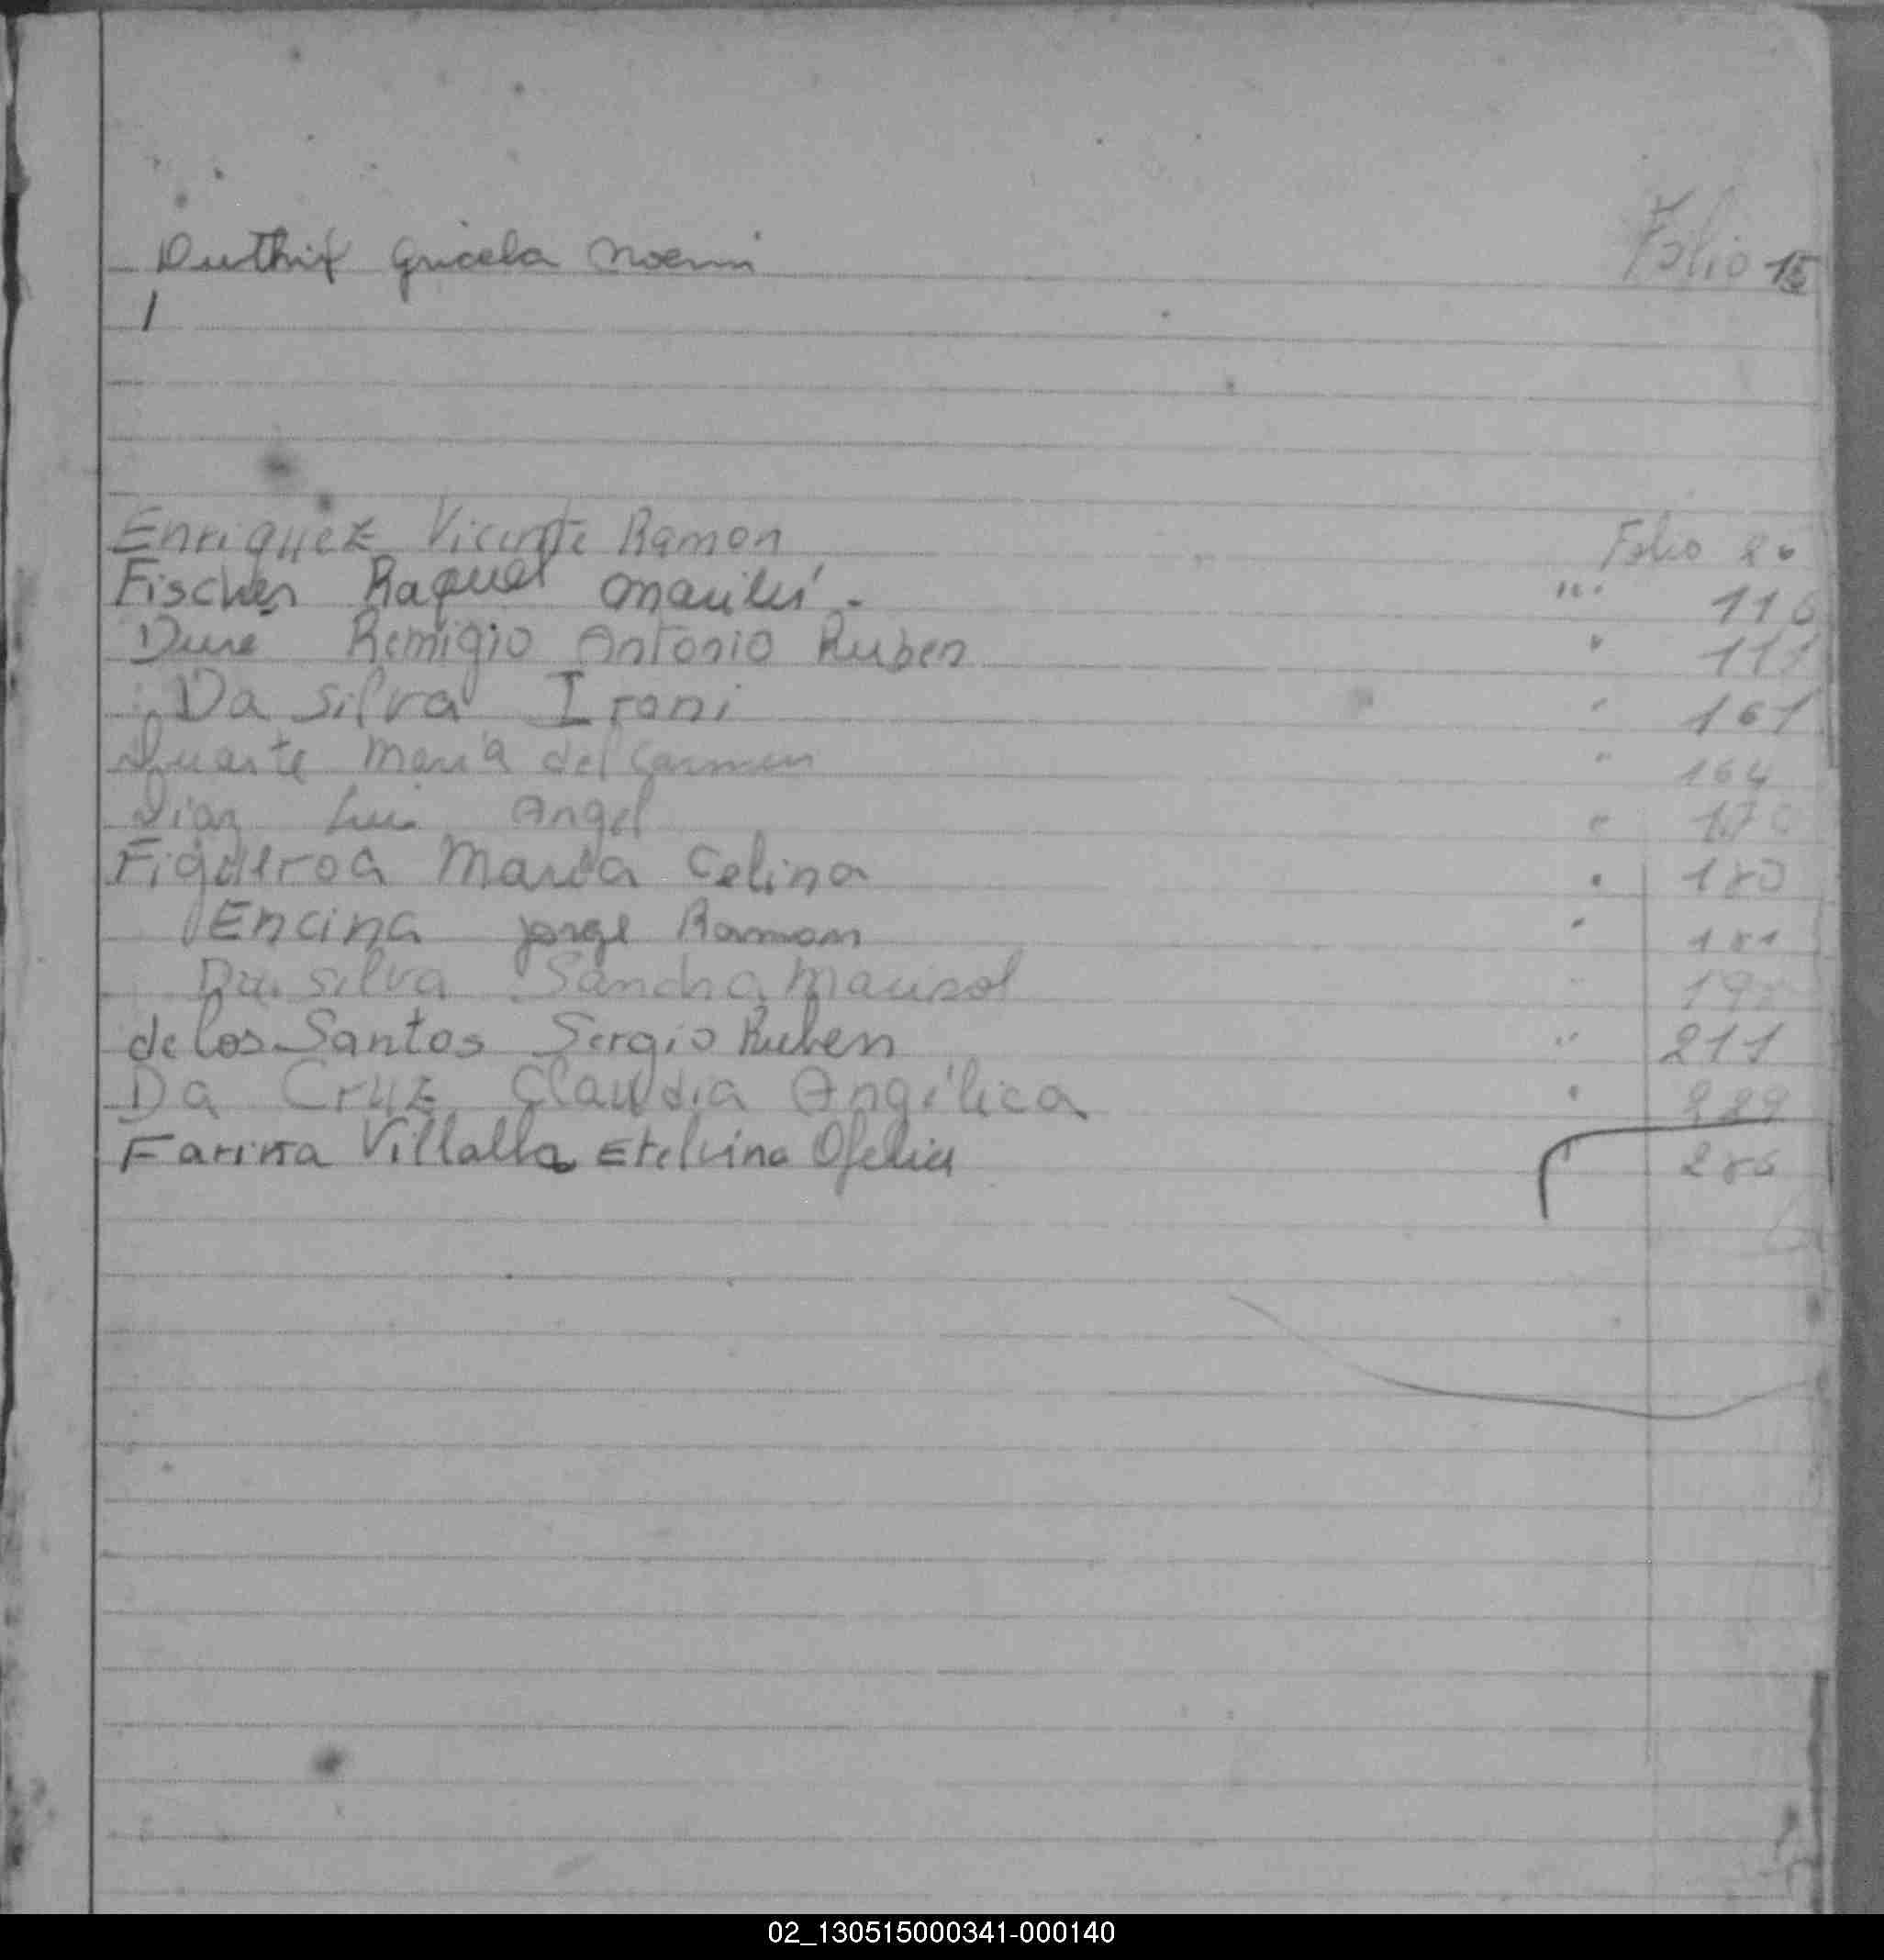 Duthix Gricela Noemi Folio 15
Enriquez Vicente Ramon Folio 20
Fischer Raquel Marilú - " 116
Dure Remigio Antonio Ruben " 111
Da Silva Irani " 161
Duarte Maria del Carmen " 164
Diaz Luis Angel " 170
Figueroa Maria Celina " 180
Encina Jorge Ramon " 181
Da Silva Sandra Marisol "
de los Santos Sergio Ruben " 211
Da Cruz Claudia Angélica " 229
Farina Villalba Etelvina Ofelia 285
02_130515000341-000140